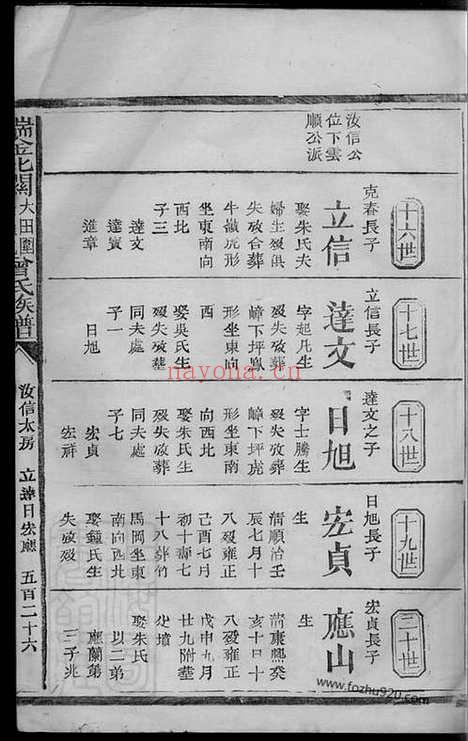 汝信公
位下雲
順公派
十六世
克春長子
立信
娶朱氏夫
婦生歿俱
失攷合葬
牛嶺虎形
坐東南向
西北
子三
達文
達賓
進章
十七世
立信長子
達文
字起凡生
歿失攷葬
嶂下坪
形坐東向
西
娶吳氏生
歿失攷葬
同夫處
子一
日旭
十八世
達文之子
日旭
字士騰生
歿失攷葬
嶂下坪虎
形坐東南
向西北
娶朱氏生
歿失攷葬
同夫處
子七
宏貞
宏祥
十九世
日旭長子
宏貞
生
清順治壬
辰七月十
八歿雍正
己酉七月
初十壽七
十八葬竹
馬岡坐東
南向西北
娶鍾氏生
失攷歿
二十世
宏貞長子
應山
生
清康熙癸
亥十月十
八歿雍正
戊申九月
廿九附葬
父墳
娶朱氏
以二弟
應蘭第
三子兆
瑞金北關大田圍曾氏族譜
汝信太房
立達日宏應
五百二十六
nayona.cn
www.fozhu920.com